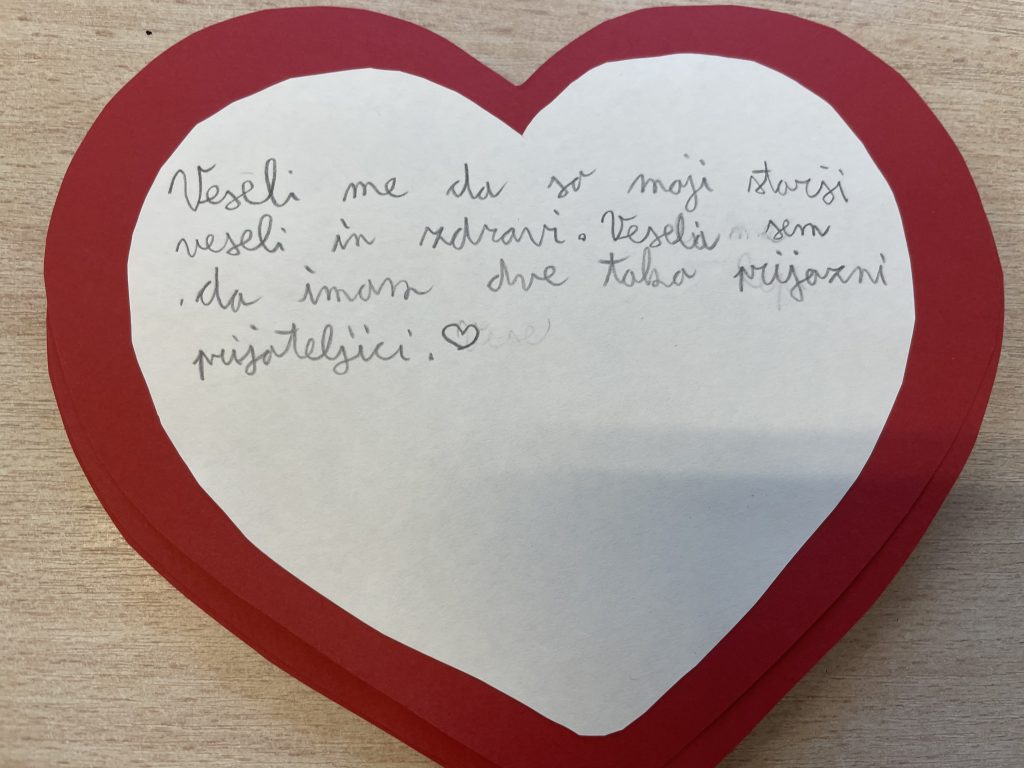 Veseli me da so moji starši
veseli in zdravi. Vesela sem
da imam dve tako prijazni
prijateljici. ♡